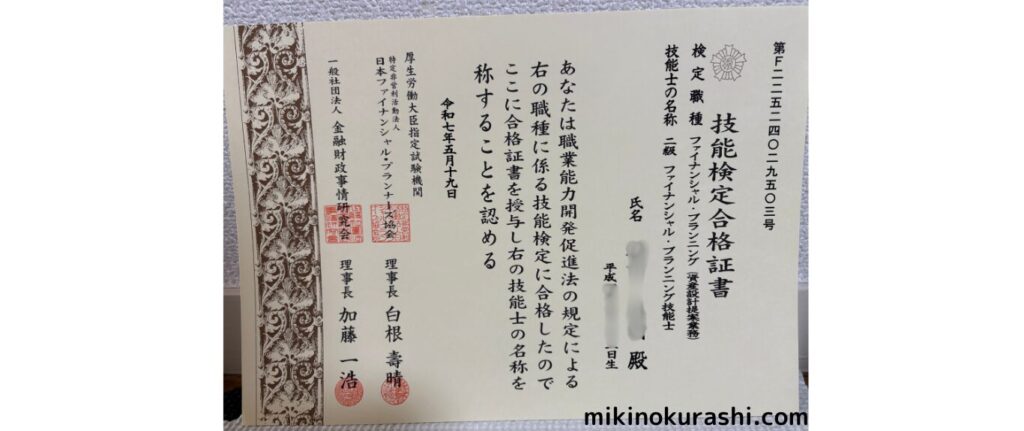 第F二二五二四〇二九五〇三号
技能検定合格証書
検定職種 ファイナンシャル・プランニング(資産設計提案業務)
技能士の名称 二級 ファイナンシャル・プランニング技能士
氏名 殿
平成 日生
あなたは職業能力開発促進法の規定による
右の職種に係る技能検定に合格したので
ここに合格証書を授与し右の技能士の名称を
称することを認める
令和七年五月十九日
厚生労働大臣指定試験機関
特定非営利活動法人
日本ファイナンシャル・プランナーズ協会 理事長 白根壽晴
一般社団法人 金融財政事情研究会 理事長 加藤一浩
mikinokurashi.com